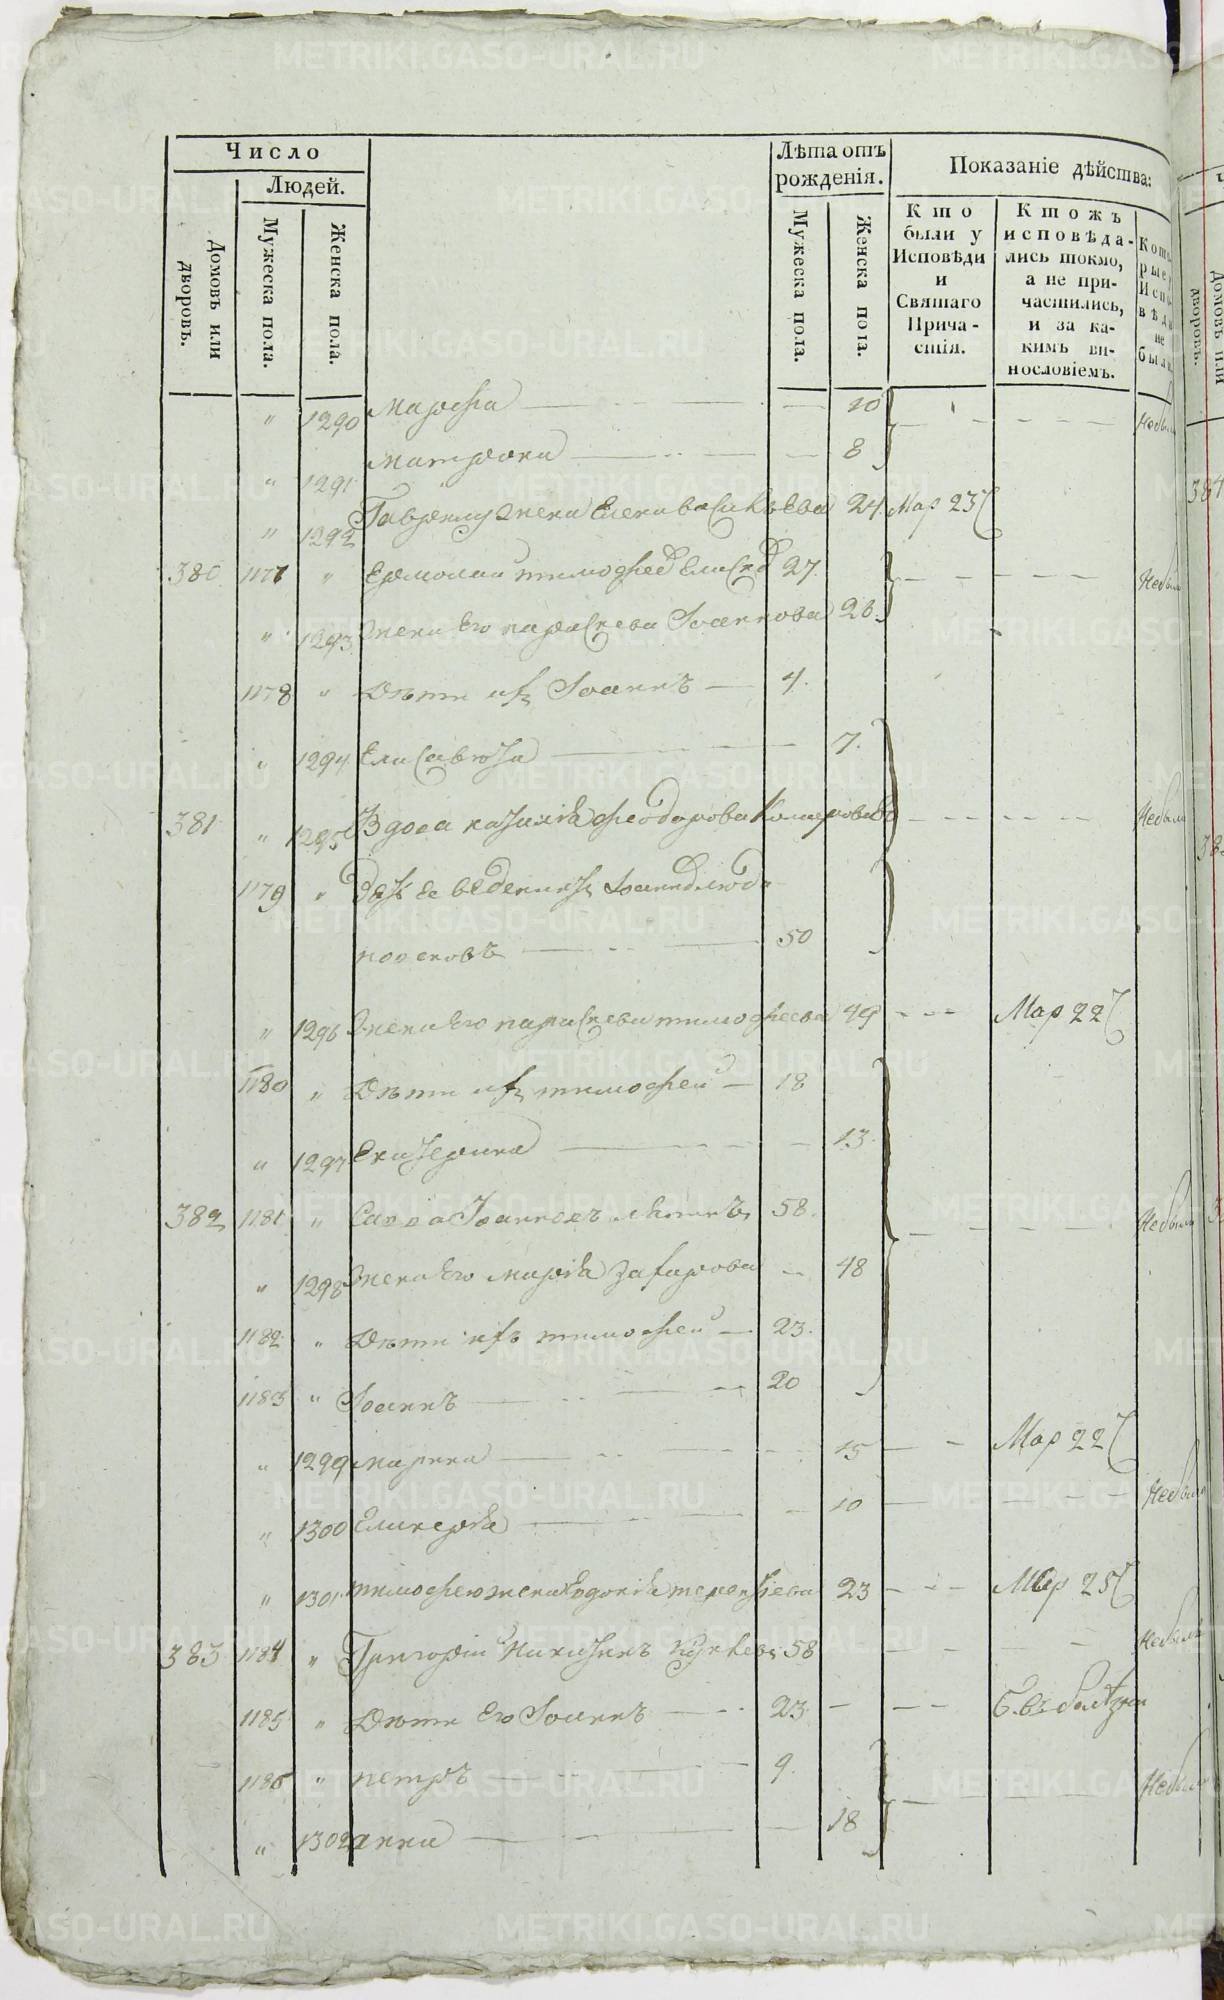 Число
Людей.
Домовъ или дворовъ.
Мужеска пола.
Женска пола.
Лѣта отъ рожденія.
Мужеска пола.
Женска пола.
Показаніе дѣйства:
Кто были у Исповѣди и Святаго Причастія.
Ктожъ исповѣдались токмо, а не причастились, и за какимъ винословіемъ.
Которые у Исповѣди не были
" 1290 Марфа 10
" 1291 Матрона 8 Небыли
" 1292 Гаврилы жена Елена Васильева 24 Мар 23
380 1177 " Ермолай тимофеев 27.
" 1293 жена Его параскева Іоаннова 26. Небыли
1178 " Дѣти ихъ Іоаннъ 4.
" 1294 Елисавета 7.
381 " 1295 Вдова наталія феодорова Небыли
1179 " Зять ее Іоанн
50
" 1296 Жена Его параскева тимофеева 49 Мар 22
1180 " Дѣти ихъ тимофей 18
" 1297 Екатерина 13.
382 1181 " Савва Іоанновъ 58. Небыли
" 1298 Жена Его марія Захарова 48
1182 " Дѣти ихъ тимофей 23.
1183 " Іоаннъ 20
" 1299 марина 15 Мар 22
" 1300 Гликерія 10 Небыла
" 1301 тимофею жена Евдокія терентіева 23 Мар 25
383 1184 " Григорій Никитинъ 58 Небылъ
1185 " Дѣти Его Іоаннъ 23 Б. въ болѣзни
1186 " петръ 9.
" 1302 анна 18 Небыли
384
METRIKI.GASO-URAL.RU